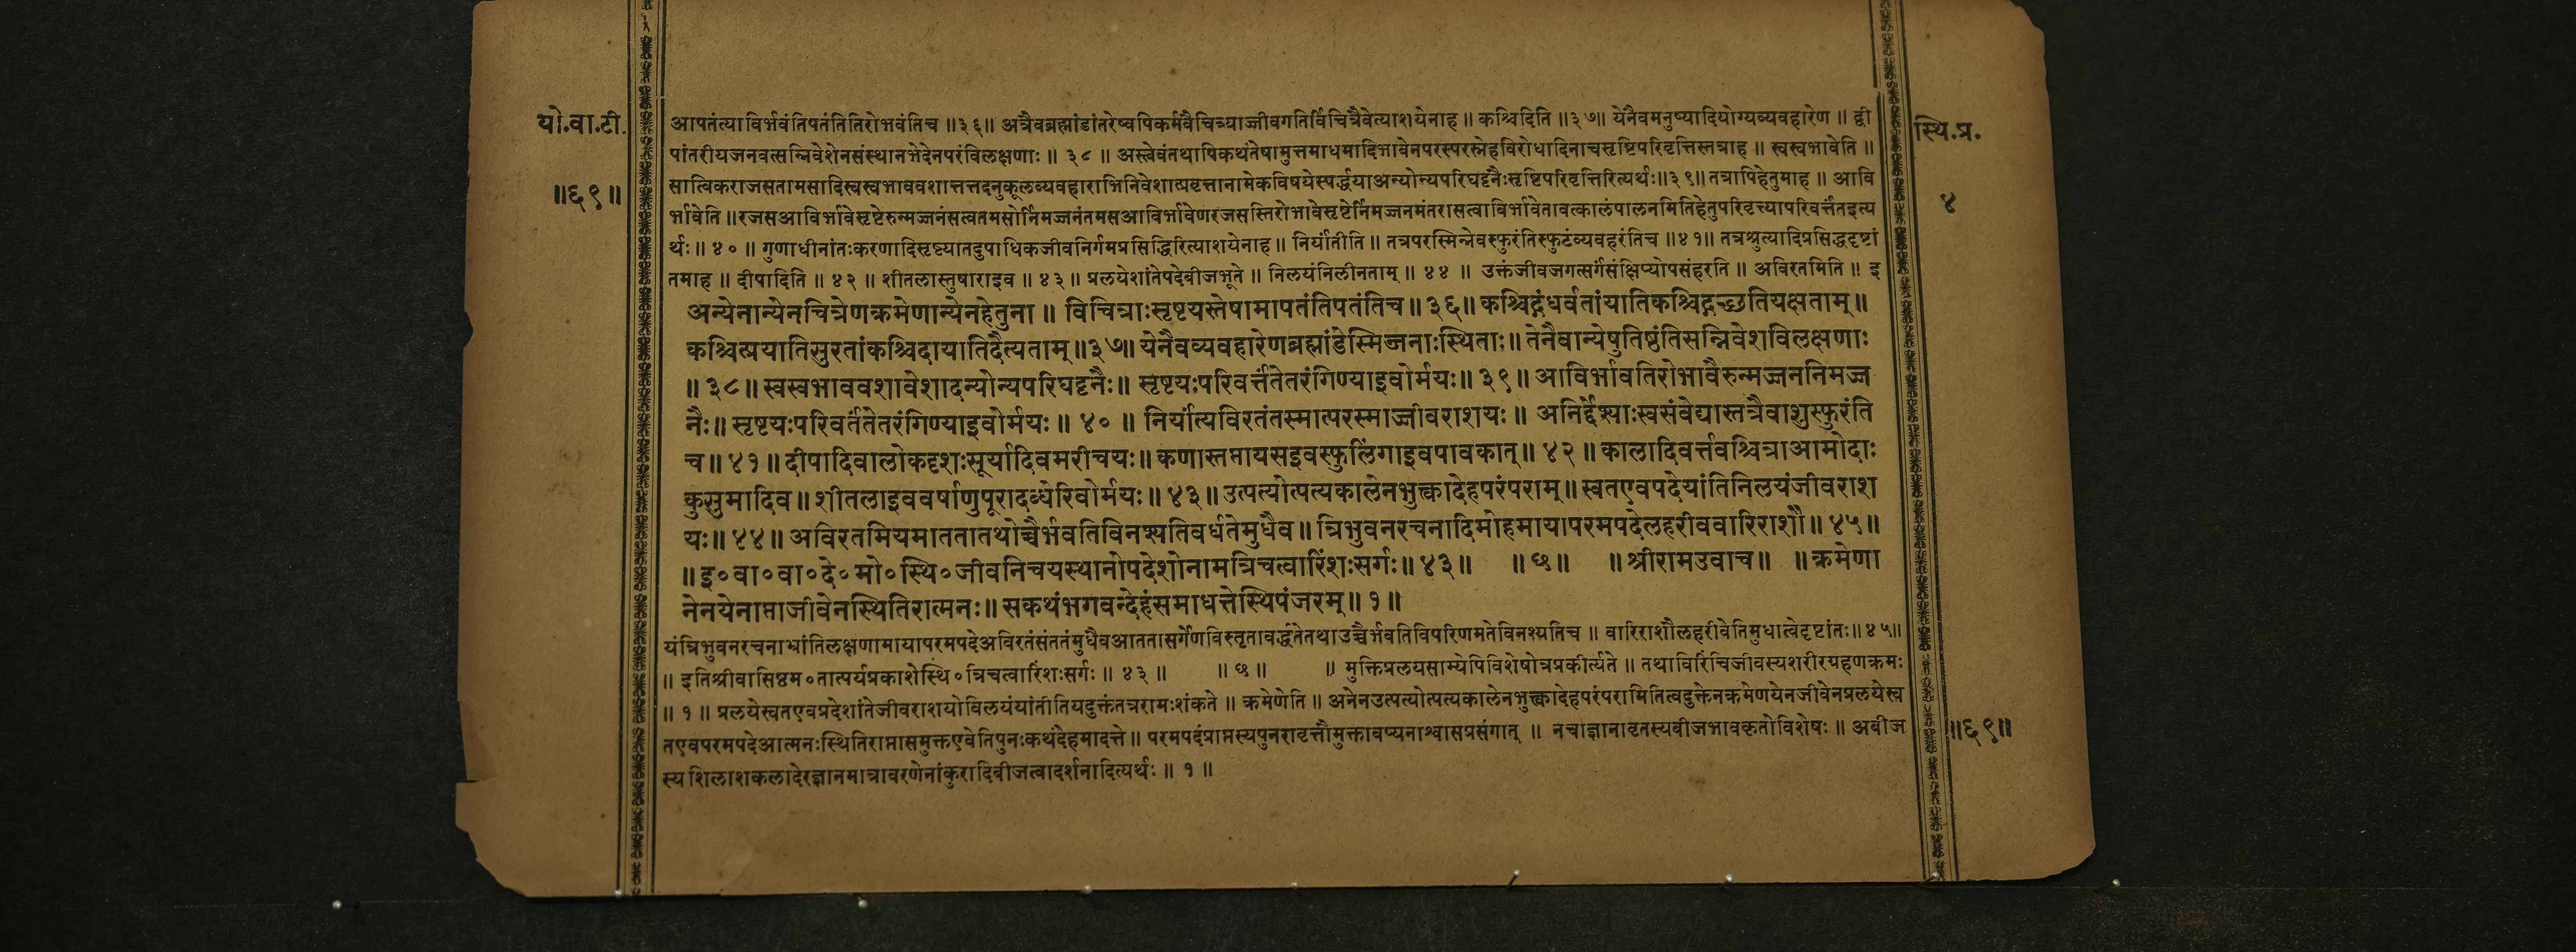 यो.वा.टी.
॥६९॥
स्थि.प्र.
४
आपतंत्याविर्भवंतिपतंतितिरोभवंतिच ॥३६॥ अत्रैवब्रह्मांडांतरेष्वपिकर्मवैचित्र्याज्जीवगतिर्विचित्रैवेत्याशयेनाह ॥ कश्चिदिति ॥३७॥ येनैवमनुष्यादियोग्यव्यवहारेण ॥ द्वी
पांतरीयजनवत्सन्निवेशेनसंस्थानभेदेनपरंविलक्षणाः ॥ ३८ ॥ अस्त्वेवंतथापिकथंतेषामुत्तमाधमादिभावेनपरस्परस्नेहविरोधादिनाचसृष्टिपरिवृत्तिस्तत्राह ॥ स्वस्वभावेति ॥
सात्विकराजसतामसादिस्वस्वभाववशात्तत्तदनुकूलव्यवहाराभिनिवेशात्प्रवृत्तानामेकविषयेस्पर्द्धयाअन्योन्यपरिघट्टनैःसृष्टिपरिवृत्तिरित्यर्थः॥३९॥ तत्रापिहेतुमाह ॥ आवि
र्भावेति ॥रजसआविर्भावेसृष्टेरुन्मज्जनंसत्वतमसोर्निमज्जनंतमसआविर्भावेणरजसस्तिरोभावेसृष्टेर्निमज्जनमंतरासत्वाविर्भावेतावत्कालंपालनमितिहेतुपरिवृत्त्यापरिवर्त्ततइत्य
र्थः॥ ४० ॥ गुणाधीनांतःकरणादिसृष्ट्यातदुपाधिकजीवनिर्गमप्रसिद्धिरित्याशयेनाह ॥ निर्यांतीति ॥ तत्रपरस्मिन्नेवस्फुरंतिस्फुटंव्यवहरंतिच ॥४१॥ तत्रश्रुत्यादिप्रसिद्धदृष्टां
तमाह ॥ दीपादिति ॥ ४२ ॥ शीतलास्तुषाराइव ॥ ४३ ॥ प्रलयेशांतेपदेबीजभूते ॥ निलयंनिलीनताम् ॥ ४४ ॥ उक्तंजीवजगत्सर्गंसंक्षिप्योपसंहरति ॥ अविरतमिति ॥ इ
अन्येनान्येनचित्रेणक्रमेणान्येनहेतुना ॥ विचित्राःसृष्टयस्तेषामापतंतिपतंतिच ॥ ३६ ॥ कश्चिद्गंधर्वतांयातिकश्चिद्गच्छतियक्षताम् ॥
कश्चित्प्रयातिसुरतांकश्चिदायातिदैत्यताम् ॥३७॥ येनैवव्यवहारेणब्रह्मांडेस्मिञ्जनाःस्थिताः॥ तेनैवान्येषुतिष्ठंतिसन्निवेशविलक्षणाः
॥ ३८ ॥ स्वस्वभाववशावेशादन्योन्यपरिघट्टनैः॥ सृष्टयःपरिवर्त्तंतेतरंगिण्याइवोर्मयः॥ ३९ ॥ आविर्भावतिरोभावैरुन्मज्जननिमज्ज
नैः॥ सृष्टयःपरिवर्तंतेतरंगिण्याइवोर्मयः ॥ ४० ॥ निर्यांत्यविरतंतस्मात्परस्माज्जीवराशयः ॥ अनिर्द्देश्याःस्वसंवेद्यास्तत्रैवाशुस्फुरंति
च॥ ४१ ॥ दीपादिवालोकदृशःसूर्यादिवमरीचयः॥ कणास्तप्तायसइवस्फुलिंगाइवपावकात् ॥ ४२ ॥ कालादिवर्त्तवश्चित्राआमोदाः
कुसुमादिव ॥ शीतलाइववर्षाणुपूरादब्धेरिवोर्मयः ॥ ४३ ॥ उत्पत्योत्पत्यकालेनभुक्त्वादेहपरंपराम् ॥ स्वतएवपदेयांतिनिलयंजीवराश
यः॥ ४४ ॥ अविरतमियमाततातथोच्चैर्भवतिविनश्यतिवर्धतेमुधैव ॥ त्रिभुवनरचनादिमोहमायापरमपदेलहरीववारिराशौ ॥ ४५ ॥
॥ इ०वा०वा०दे०मो०स्थि०जीवनिचयस्थानोपदेशोनामत्रिचत्वारिंशःसर्गः॥ ४३ ॥ ॥ छ ॥ ॥ श्रीरामउवाच ॥ ॥ क्रमेणा
नेनयेनाप्ताजीवेनस्थितिरात्मनः॥ सकथंभगवन्देहंसमाधत्तेस्थिपंजरम् ॥ १ ॥
यंत्रिभुवनरचनाभ्रांतिलक्षणामायापरमपदेअविरतंसंततंमुधैवआततासर्गेणविस्तृतावर्द्धतेतथाउच्चैर्भवतिविपरिणमतेविनश्यतिच ॥ वारिराशौलहरीवेतिमुधात्वेदृष्टांतः॥४५॥
॥ इतिश्रीवासिष्ठम०तात्पर्यप्रकाशेस्थि०त्रिचत्वारिंशःसर्गः ॥ ४३ ॥ ॥ छ ॥ ॥ मुक्तिप्रलयसाम्येपिविशेषोत्रप्रकीर्त्यते ॥ तथाविरिंचिजीवस्यशरीरग्रहणक्रमः
॥ १ ॥ प्रलयेस्वतएवप्रदेशांतेजीवराशयोविलयंयांतीतियदुक्तंतत्ररामःशंकते ॥ क्रमेणेति ॥ अनेनउत्पत्योत्पत्यकालेनभुक्त्वादेहपरंपरामितित्वदुक्तेनक्रमेणयेनजीवेनप्रलयेस्व
तएवपरमपदेआत्मनःस्थितिराप्तासमुक्तएवेतिपुनःकथंदेहमादत्ते ॥ परमपदंप्राप्तस्यपुनरावृत्तौमुक्तावप्यनाश्वासप्रसंगात् ॥ नचाज्ञानावृतस्यबीजभावकृतोविशेषः ॥ अबीज
स्यशिलाशकलादेरज्ञानमात्रावरणेनांकुरादिबीजत्वादर्शनादित्यर्थः ॥ १ ॥
॥६९॥